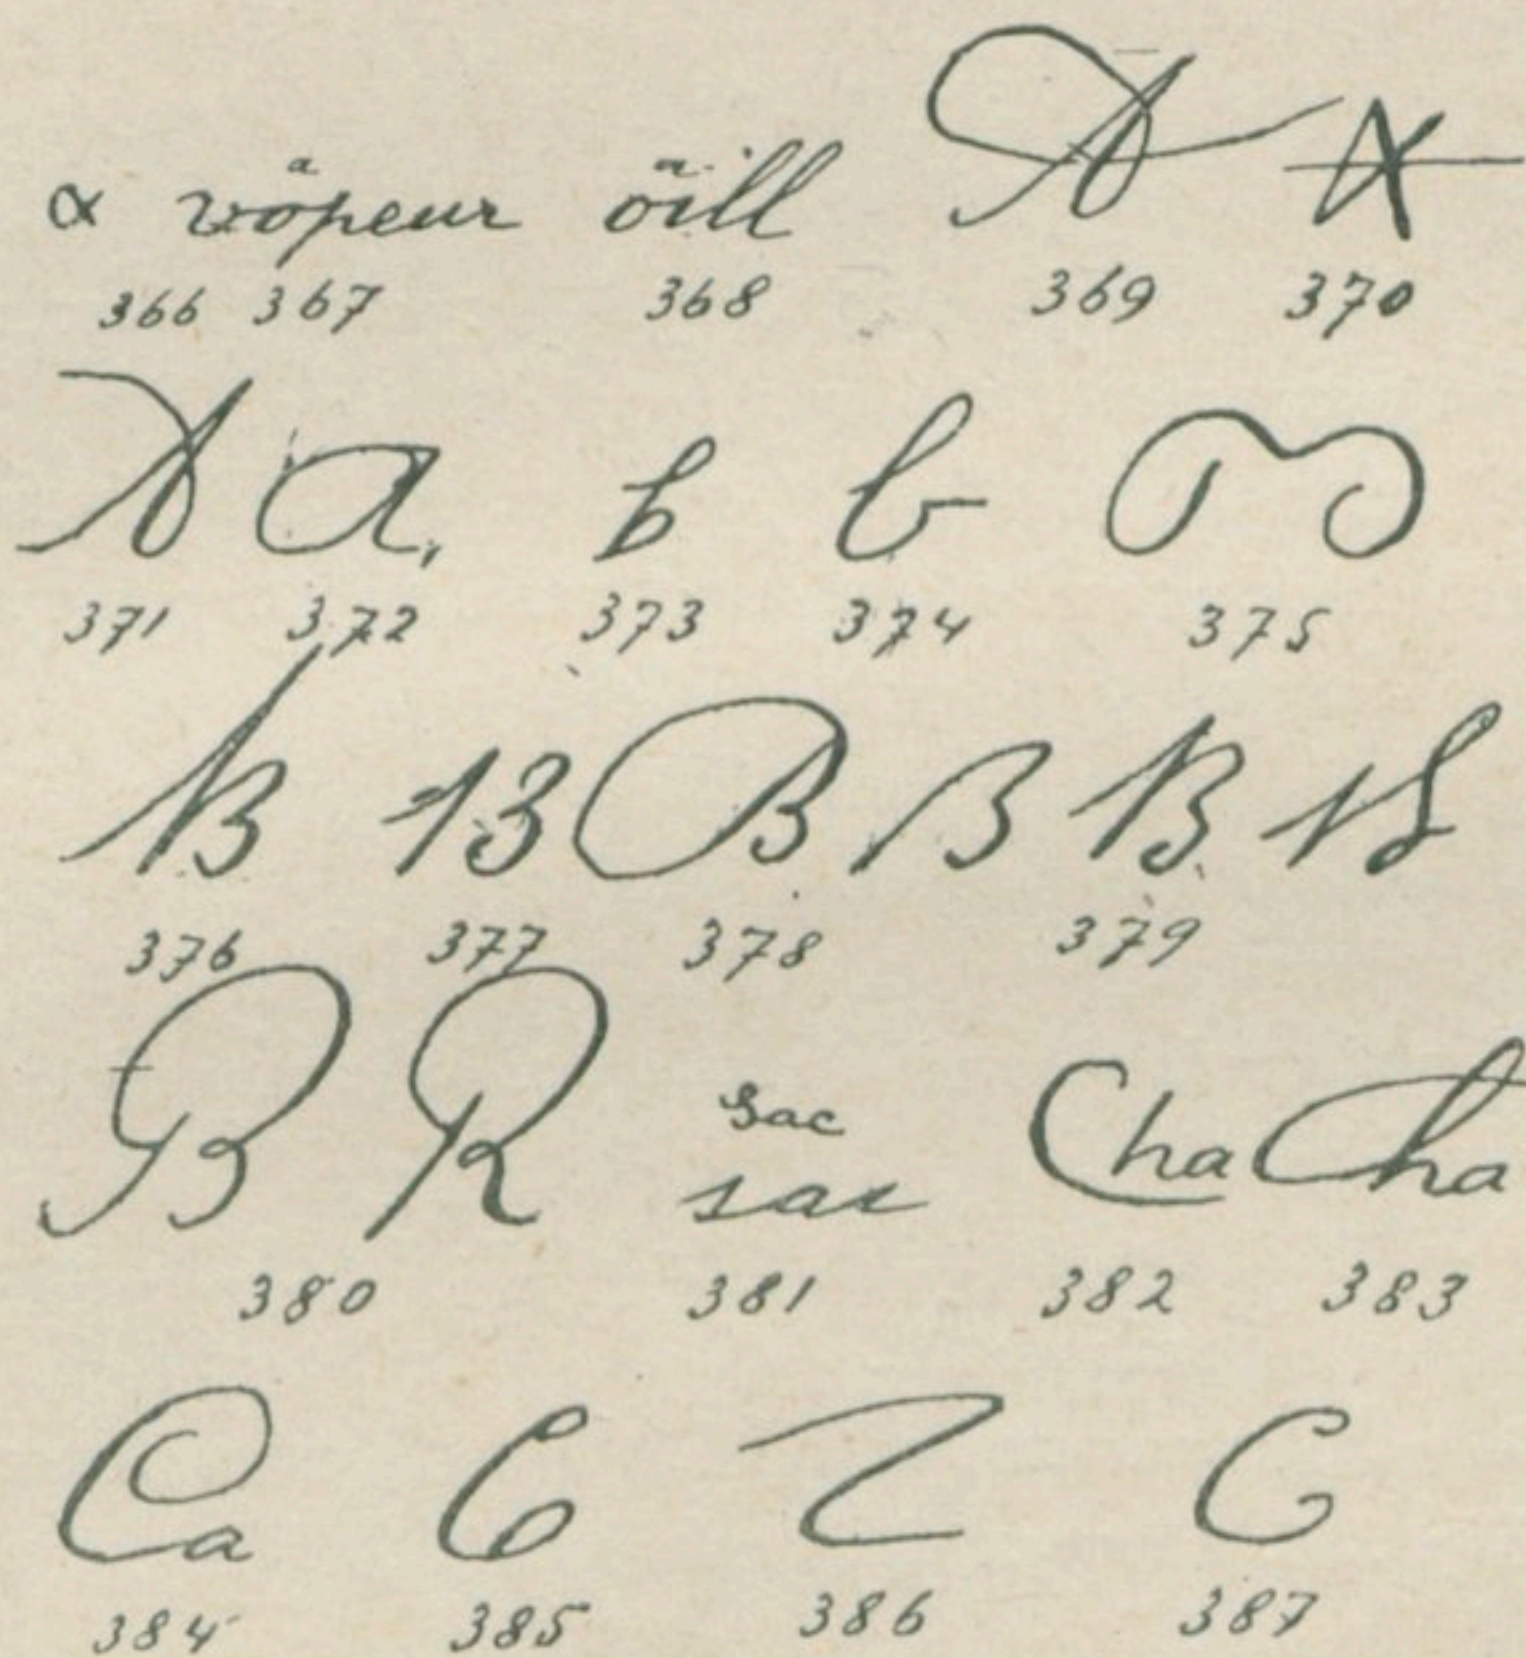 α väpeur öill A A
366 367 368 369 370
A a b b
371 372 373 374 375
B 13 B B B B
376 377 378 379
B R sac Cha Cha
sac
380 381 382 383
Ca C C C
384 385 386 387